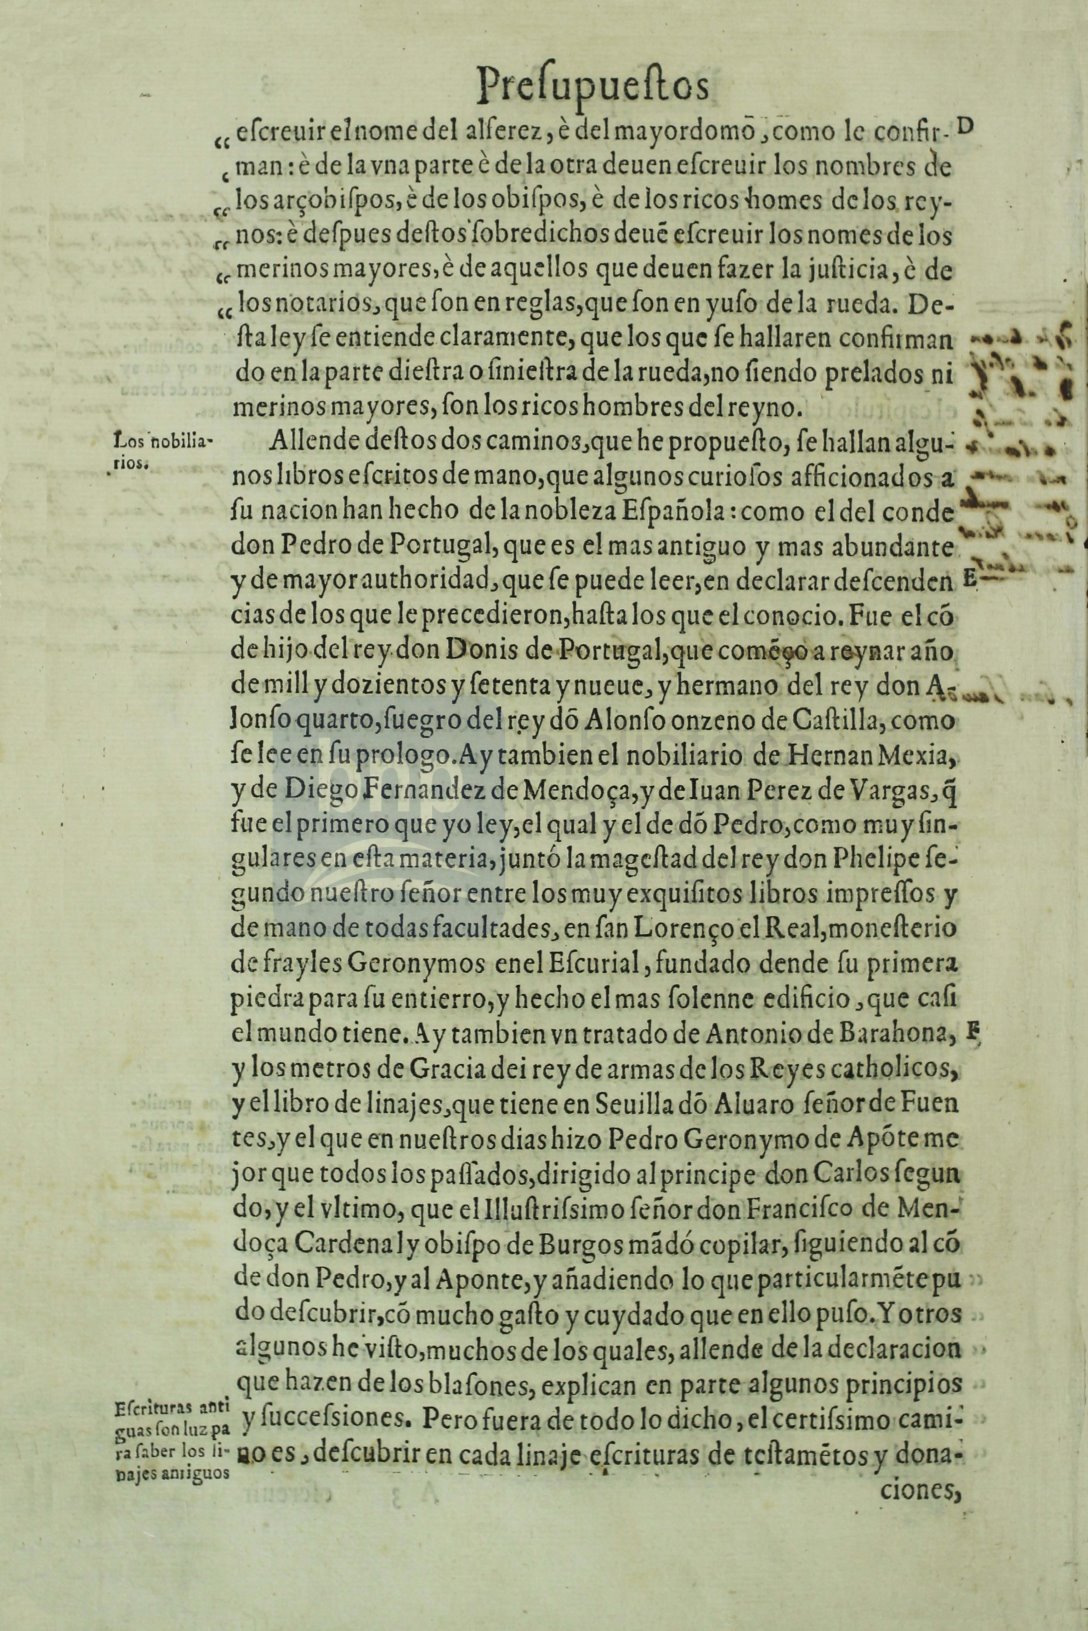 Preſupueſtos
“ eſcreuir el nome del alferez, è del mayordomō, como le confir- D
“ man: è de la vna parte è de la otra deuen eſcreuir los nombres de
“ los arçobiſpos, è de los obiſpos, è de los ricos homes de los rey-
“ nos: è deſpues deſtos ſobredichos deuē eſcreuir los nomes de los
“ merinos mayores, è de aquellos que deuen fazer la juſticia, è de
“ los notarios, que ſon en reglas, que ſon en yuſo de la rueda. De-
ſta ley ſe entiende claramente, que los que ſe hallaren confirman
do en la parte dieſtra o ſinieſtra de la rueda, no ſiendo prelados ni
merinos mayores, ſon los ricos hombres del reyno.
Los nobilia-
rios.
Allende deſtos dos caminos, que he propueſto, ſe hallan algu-
nos libros eſcritos de mano, que algunos curioſos afficionados a
ſu nacion han hecho de la nobleza Eſpañola: como el del conde
don Pedro de Portugal, que es el mas antiguo y mas abundante
y de mayor authoridad, que ſe puede leer, en declarar deſcenden E
cias de los que le precedieron, haſta los que el conocio. Fue el cō
de hijo del rey don Donis de Portugal, que comēço a reynar año
de mill y dozientos y ſetenta y nueue, y hermano del rey don A-
lonſo quarto, ſuegro del rey dō Alonſo onzeno de Caſtilla, como
ſe lee en ſu prologo. Ay tambien el nobiliario de Hernan Mexia,
y de Diego Fernandez de Mendoça, y de Iuan Perez de Vargas, q̃
fue el primero que yo ley, el qual y el de dō Pedro, como muy ſin-
gulares en eſta materia, juntó la mageſtad del rey don Phelipe ſe-
gundo nueſtro ſeñor entre los muy exquiſitos libros impreſſos y
de mano de todas facultades, en ſan Lorenço el Real, moneſterio
de frayles Geronymos enel Eſcurial, fundado dende ſu primera
piedra para ſu entierro, y hecho el mas ſolenne edificio, que caſi
el mundo tiene. Ay tambien vn tratado de Antonio de Barahona, F
y los metros de Gracia dei rey de armas de los Reyes catholicos,
y el libro de linajes, que tiene en Seuilla dō Aluaro ſeñor de Fuen
tes, y el que en nueſtros dias hizo Pedro Geronymo de Apōte me
jor que todos los paſſados, dirigido al principe don Carlos ſegun
do, y el vltimo, que el Illuſtriſsimo ſeñor don Franciſco de Men-
doça Cardenal y obiſpo de Burgos mādó copilar, ſiguiendo al cō
de don Pedro, y al Aponte, y añadiendo lo que particularmēte pu
do deſcubrir, cō mucho gaſto y cuydado que en ello puſo. Y otros
algunos he viſto, muchos de los quales, allende de la declaracion
que hazen de los blaſones, explican en parte algunos principios
Eſcrituras anti
guas ſon luz pa
ra ſaber los li-
najes antiguos
y ſucceſsiones. Pero fuera de todo lo dicho, el certiſsimo cami-
no es, deſcubrir en cada linaje eſcrituras de teſtamētos y dona-
ciones,